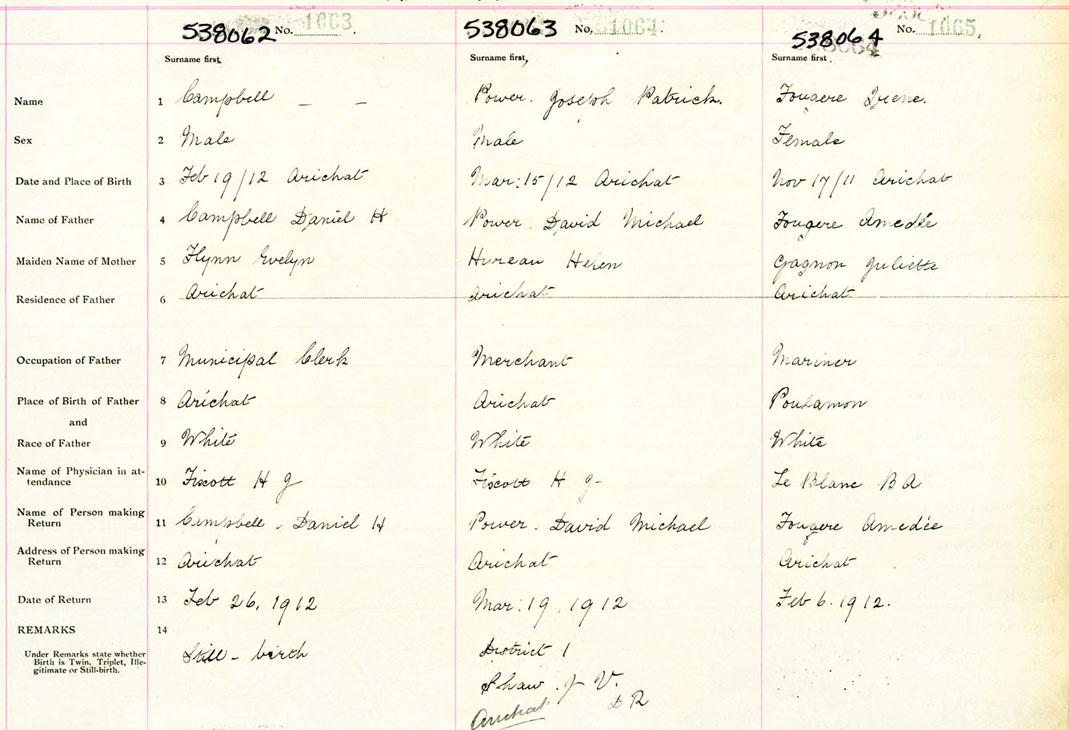 538062 No. 1063. 538063 No. 1064. 538064 No. 1065.
Surname first, Surname first, Surname first.
Name 1 Campbell — — Power. Joseph Patrick. Fougere Irene.
Sex 2 Male Male Female
Date and Place of Birth 3 Feb 19/12 Arichat Mar: 15/12 Arichat Nov 17/11 Arichat
Name of Father 4 Campbell Daniel H Power. David Michael Fougere Amedée
Maiden Name of Mother 5 Flynn Evelyn Hureau Helen Gagnon Juliette
Residence of Father 6 Arichat Arichat Arichat
Occupation of Father 7 Municipal Clerk Merchant Mariner
Place of Birth of Father 8 Arichat Arichat Poulamon
and
Race of Father 9 White White White
Name of Physician in at-
tendance 10 Fiscott H J Fiscott H J- Le Blanc B A
Name of Person making
Return 11 Campbell - Daniel H Power. David Michael Fougere Amedée
Address of Person making
Return 12 Arichat Arichat Arichat
Date of Return 13 Feb 26, 1912 Mar: 19, 1912 Feb 6. 1912.
REMARKS 14
Under Remarks state whether
Birth is Twin, Triplet, Ille-
gitimate or Still-birth.
Still - birth District 1
Shaw. J V.
D R
Arichat